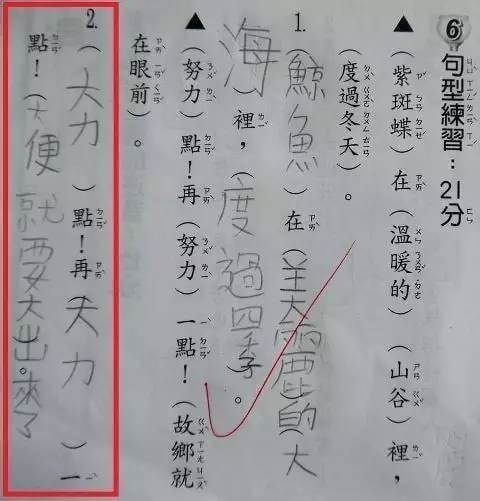 6 句型練習：21分
▲（紫斑蝶）在（溫暖的）（山谷）裡，
（度過冬天）。
1.（鯨魚）在（美麗的）（大
海）裡，（度過四季）。
▲（努力）點！再（努力）一點！（故鄉就
在眼前）。
2.（大力）點！再（大力）一
點！（大便就要大出。來了